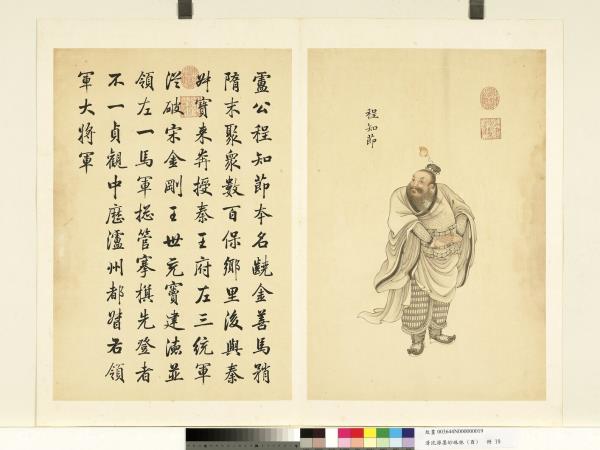 程知節
盧公程知節本名金善馬矟
隋末聚眾數百保鄉里後與秦
叔寶來奔授秦王府左三統軍
從破宋金剛王世充竇建德並
領左一馬軍總管搴旗先登者
不一貞觀中歷瀘州都督右領
軍大將軍
故畫 003644N000000019
清沈源墨妙珠林(酉) 冊 19